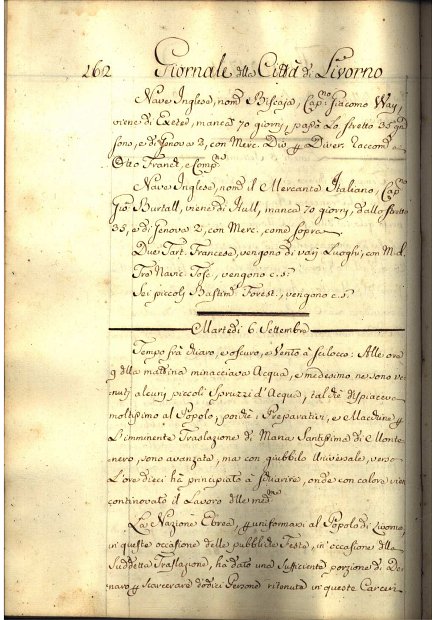 262 Giornale della Città di Livorno
Nave Inglese, nom.ª Biscaja, Cap.no Giacomo Way,
viene di Exeter, manca 70 giorni, passò Lo stretto 35 gni
sono, e di Genova 2, con Merc. Div. e Diver. Raccom. a
Otto Franck, e Comp.
Nave Inglese, nom. il Mercante Italiano, Cap.no
Gio. Burtall, viene di Hull, manca 70 giorni, dallo stretto
35, e di Genova 2, con Merc., come sopra
Due Tart. Francese, vengono di varj Luoghi, con M. d.
Tre Navic. Tosc., vengono c. s.ª
Sei piccoli Bastim.ti Forest., vengono c. s.ª
Martedi 6. Settembre
Tempo frà chiaro, e oscuro, e Vento à Scilocco: Alle ore
9 della mattina minacciava Acqua, e medesimo ne sono ve
nuti alcuni piccoli Spruzzi d'Acqua, tal che dispiaceva
moltissimo al Popolo, poiche i Preparativi, e Macchine p
L'imminente Traslazione di Maria Santissima di Monte-
nero, sono avanzate, ma con giubbilo Universale, verso
L'ore dieci hà principiato à schiarire, onde con calore vien
continovato il Lavoro delle med.me
La Nazione Ebrea, p uniformarsi al Popolo di Livorno,
in queste occasione delle pubbliche Feste, in occasione della
suddetta Traslazione, ha dato una sufficiente porzione di De-
naro p scarcerare dodici Persone ritenute in queste Carceri